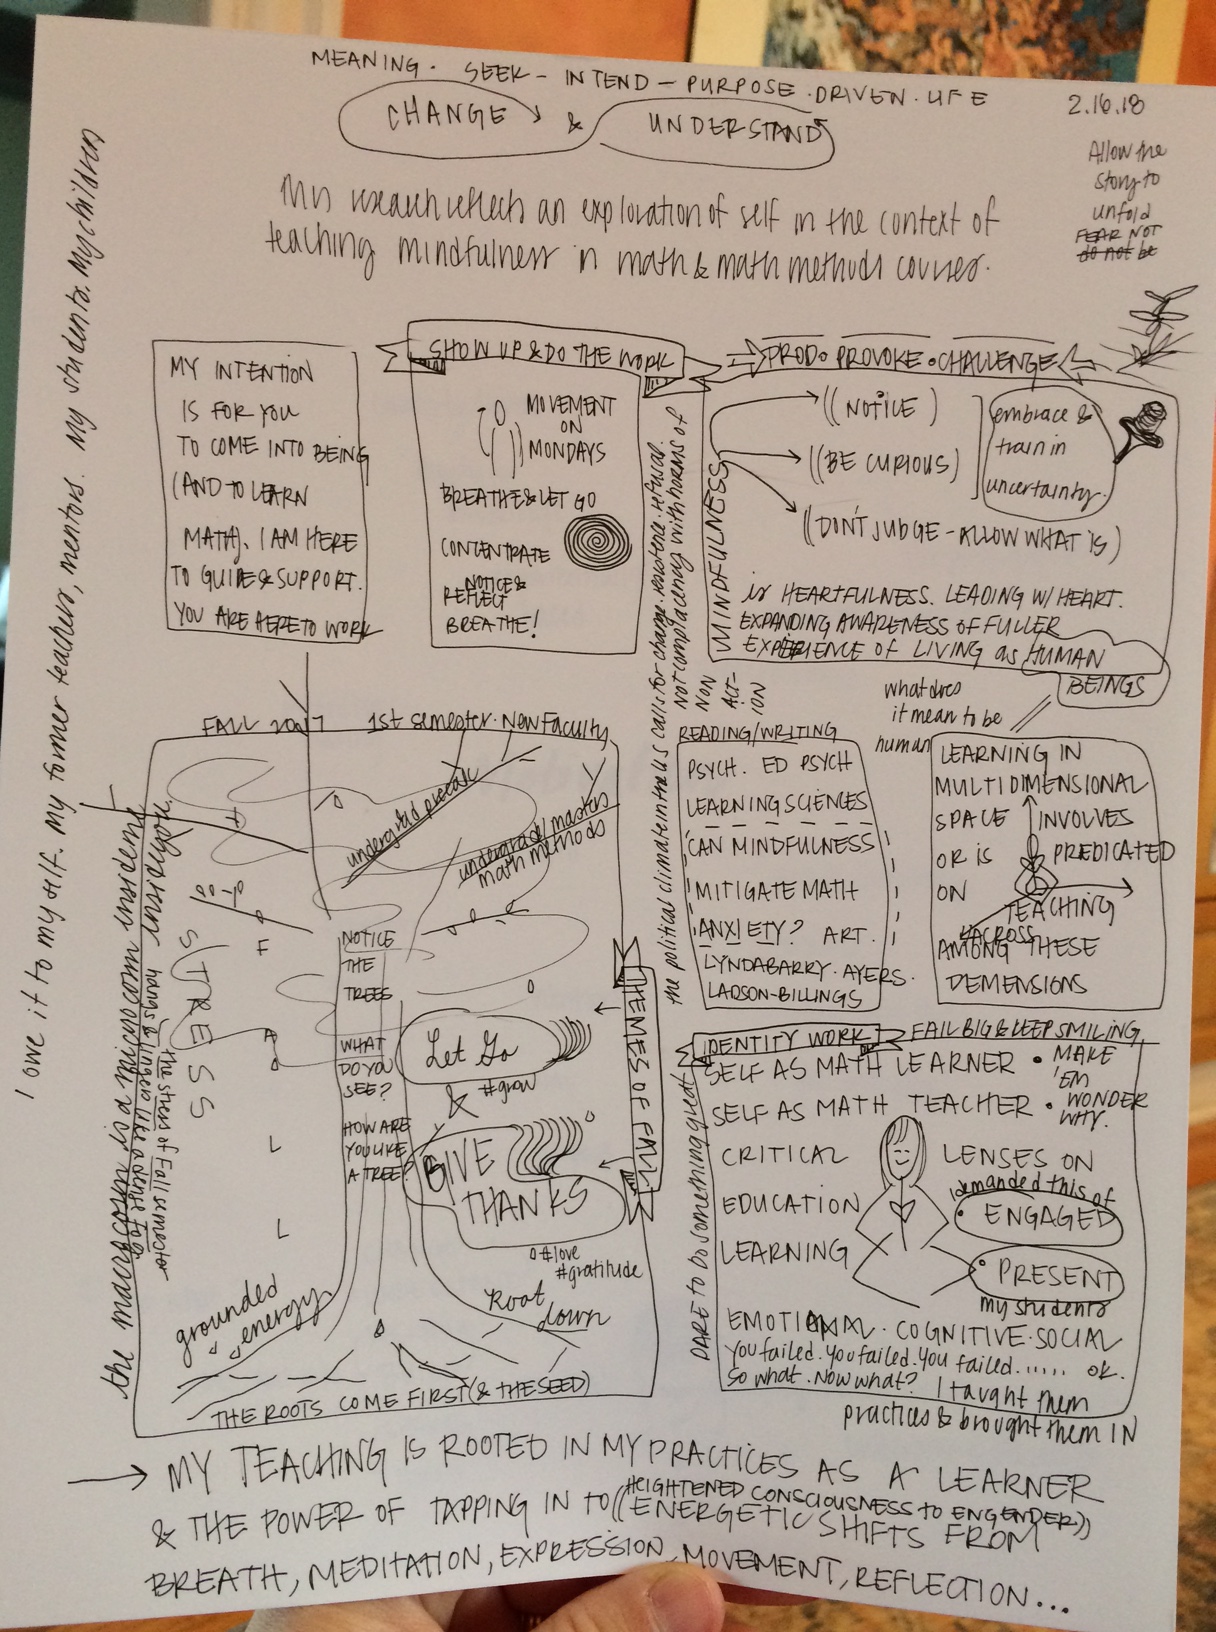 MEANING · SEEK - INTEND - PURPOSE · DRIVEN · LIFE
2.16.18
CHANGE & UNDERSTAND
Allow the
story to
unfold
FEAR NOT
do not be
My research reflects an exploration of self in the context of
teaching mindfulness in math & math methods courses.
I owe it to my self. my former teachers, mentors. My students. My children
MY INTENTION
IS FOR YOU
TO COME INTO BEING
(AND TO LEARN
MATH). I AM HERE
TO GUIDE & SUPPORT.
YOU ARE HERE TO WORK
SHOW UP & DO THE WORK
MOVEMENT
ON
MONDAYS
BREATHE & LET GO
CONCENTRATE
NOTICE &
REFLECT
BREATHE!
PROD · PROVOKE · CHALLENGE
MINDFULNESS
((NOTICE)
((BE CURIOUS)
((DON'T JUDGE - ALLOW WHAT IS)
embrace &
train in
uncertainty.
is HEARTFULNESS. LEADING W/ HEART.
EXPANDING AWARENESS OF FULLER
EXPERIENCE OF LIVING as HUMAN
BEINGS
what does
it mean to be
human
the political climate in the U.S. calls for change. resistance. refusal.
Not complacency with norms of
NON
ACT-
ION
FALL 2017 1st semester. New Faculty
undergrad precalc
undergrad/masters
math methods
the macrocosm is a microcosm inside me
inside you
the stress of Fall semester
hangs & lingers like a dense fog
STRESS
F
A
L
L
NOTICE
THE
TREES
WHAT
DO YOU
SEE?
HOW ARE
YOU LIKE
A TREE?
Let Go
#grow
&
GIVE
THANKS
#love
#gratitude
THEMES OF FALL
grounded
energy
Root
down
THE ROOTS COME FIRST (& THE SEED)
READING/WRITING
PSYCH. ED PSYCH
LEARNING SCIENCES
CAN MINDFULNESS
MITIGATE MATH
ANXIETY? ART.
LYNDA BARRY. AYERS.
LADSON-BILLINGS
LEARNING IN
MULTIDIMENSIONAL
SPACE INVOLVES
OR IS PREDICATED
ON
TEACHING
ACROSS
AMONG THESE
DEMENSIONS
IDENTITY WORK
FAIL BIG & KEEP SMILING
SELF AS MATH LEARNER · MAKE
'EM
SELF AS MATH TEACHER · WONDER
WHY.
CRITICAL LENSES ON
EDUCATION
LEARNING
I demanded this of
ENGAGED
PRESENT
my students
EMOTIONAL · COGNITIVE · SOCIAL
You failed. You failed. You failed...... OK.
So what. Now what? I taught them
practices & brought them IN
DARE to do something great
MY TEACHING IS ROOTED IN MY PRACTICES AS A LEARNER
& THE POWER OF TAPPING IN TO ((HEIGHTENED CONSCIOUSNESS TO ENGENDER))
ENERGETIC SHIFTS FROM
BREATH, MEDITATION, EXPRESSION, MOVEMENT, REFLECTION...